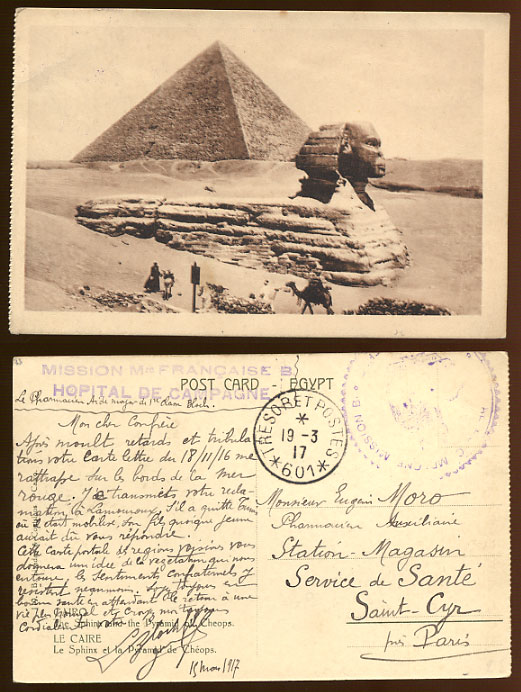 MISSION Mre FRANÇAISE B
HOPITAL DE CAMPAGNE
POST CARD - EGYPT
Le Pharmacien Aide major de 1re Classe Bloch.
TRESOR ET POSTES
19-3
17
*601*
MISSION B
Mon cher Confrère
Après moult retards et tribula
tions votre Carte lettre du 18/11/16 me
rattrape sur les bords de la mer
rouge. Je transmets votre récla
mation à Lamouroux. S'il a quitté
où il était mobilisé, son fils quoique jeune
aurait dû vous répondre.
Cette Carte postale et régions voisines vous
donnera un idée de la végétation qui nous
entoure, les Sentiments confraternels y
résistent néanmoins. toujours en
bonne santé en attendant le retour à une
vie normal et Croyez moi toujours
Cordialement votre
Bloch
15 Mars 1917
CAIRO
The Sphinx and the Pyramid of Cheops.
LE CAIRE
Le Sphinx et la Pyramide de Chéops.
Monsieur Eugène Moro
Pharmacien Auxiliaire
Station-Magasin
Service de Santé
Saint-Cyr
près Paris